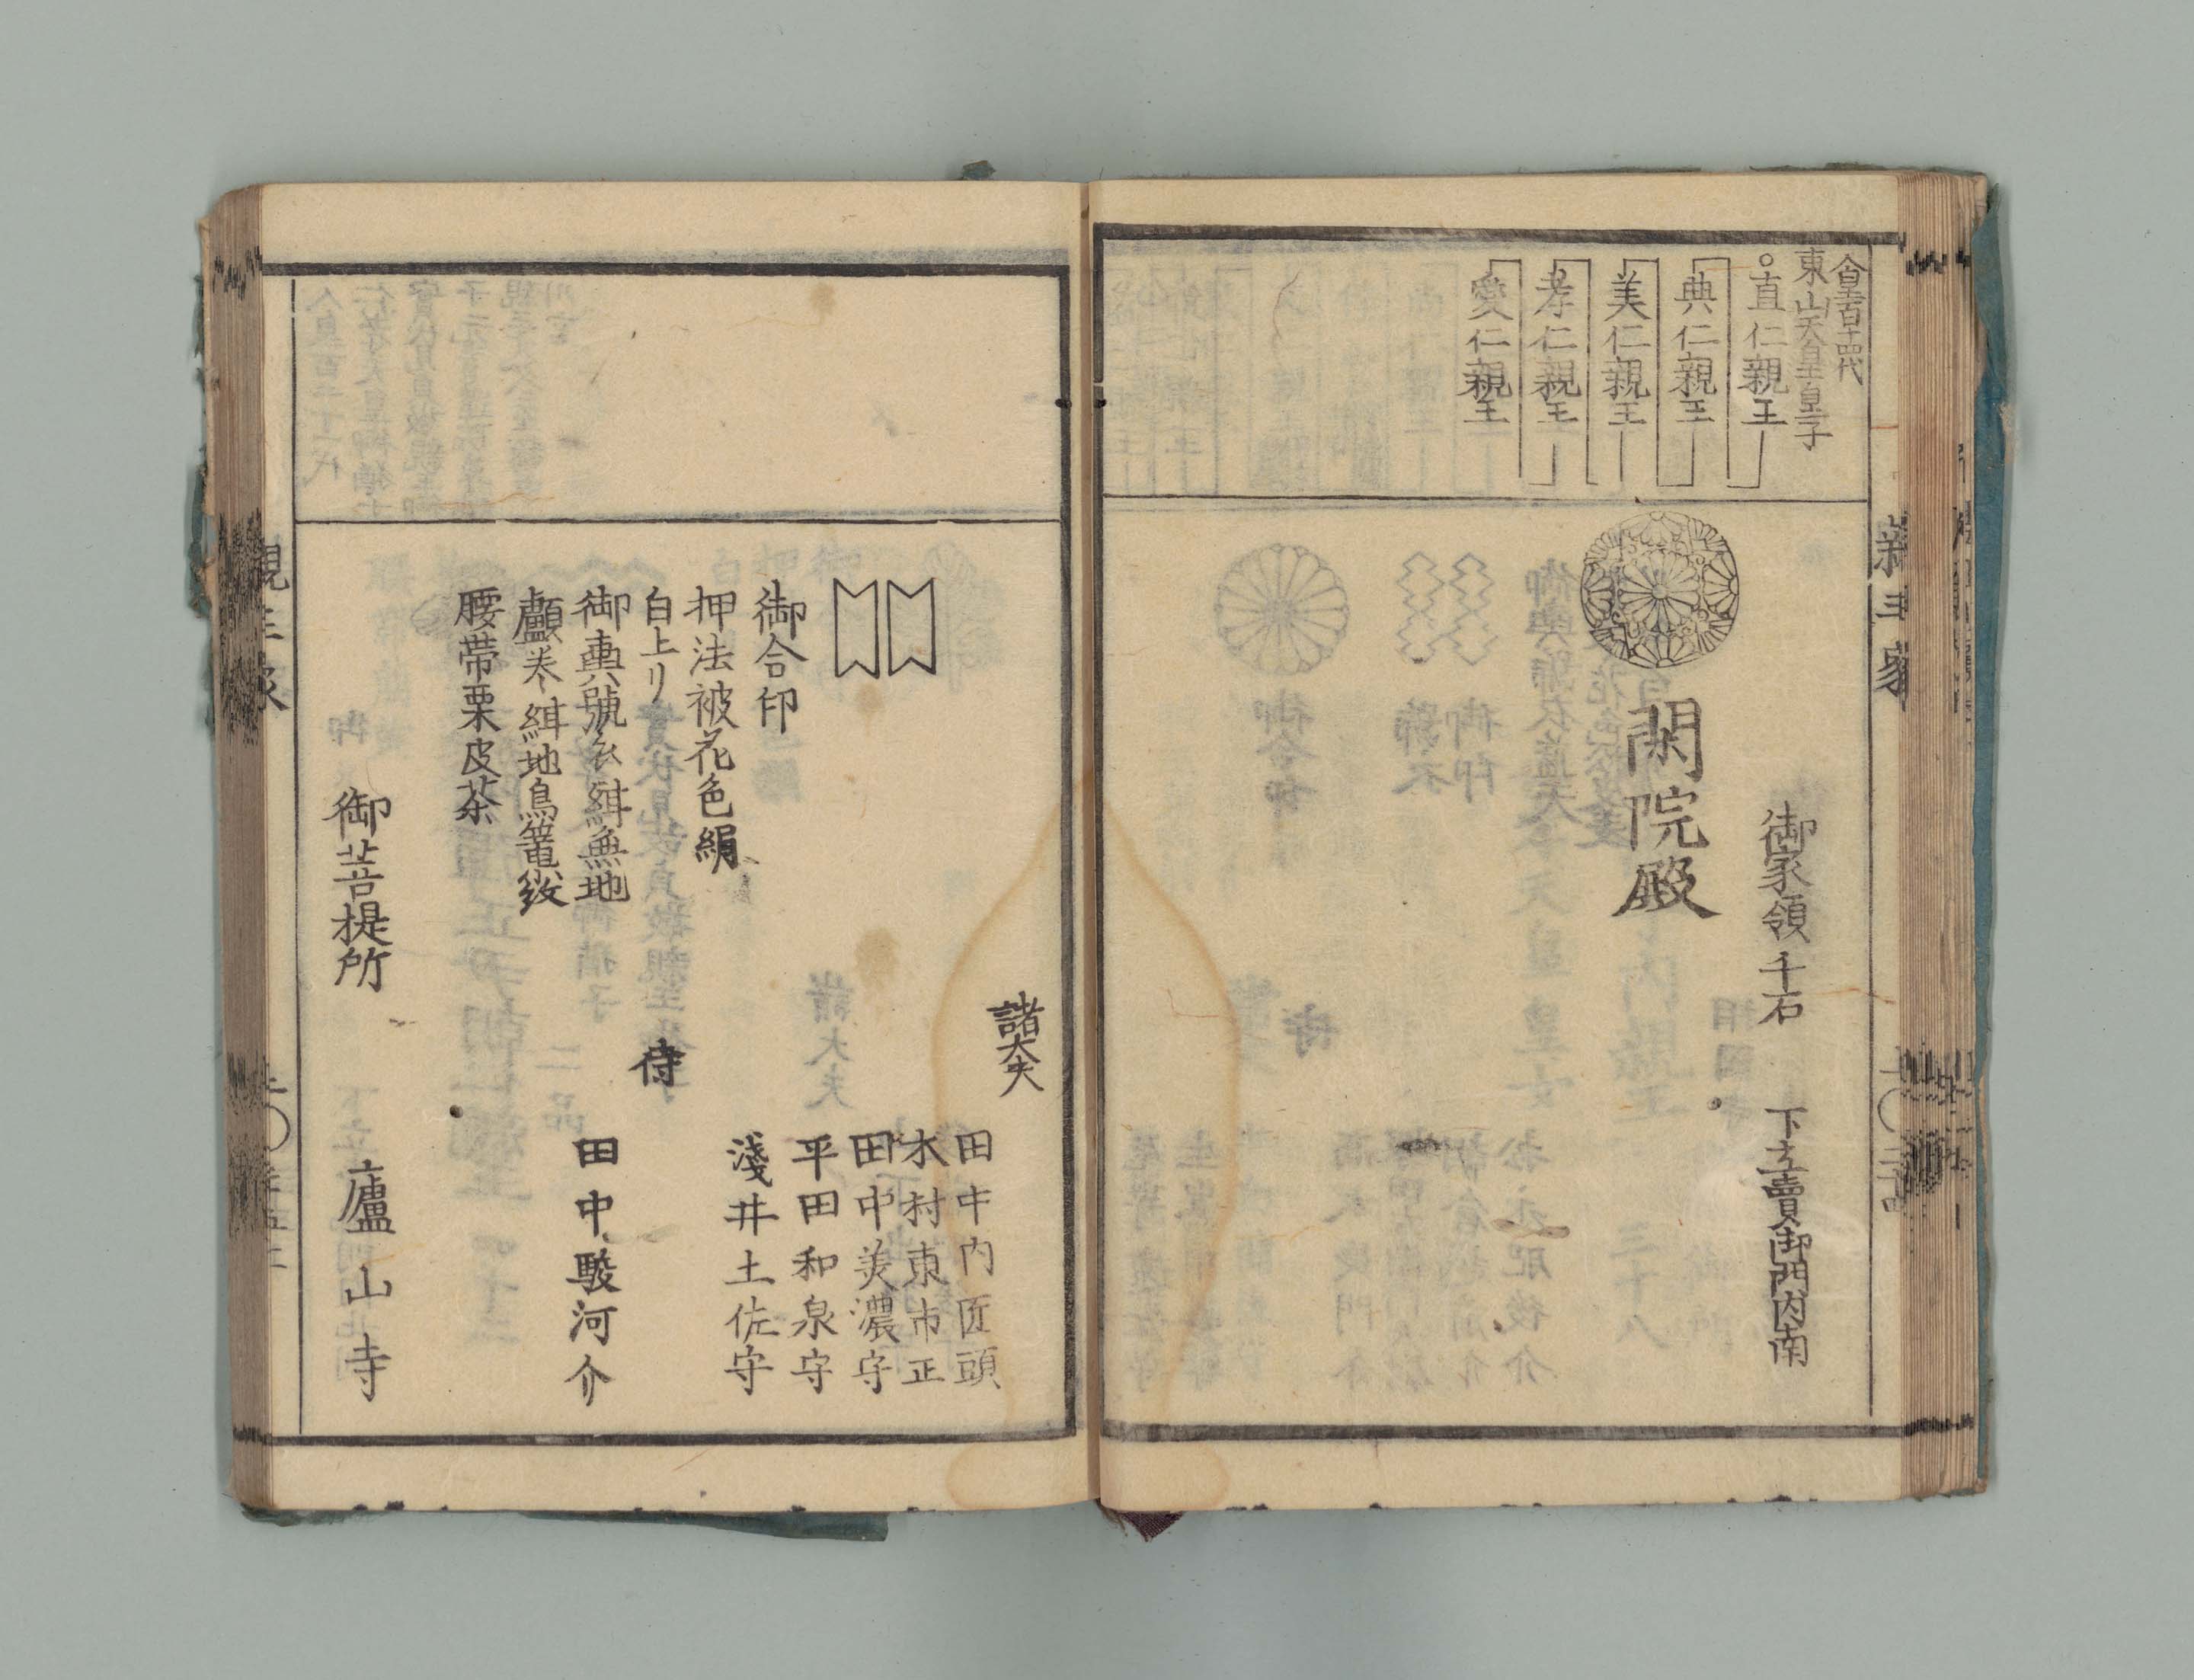 親王家
人皇百十四代
東山天皇皇子
直仁親王
典仁親王
美仁親王
孝仁親王
愛仁親王
御家領千石
下立賣御門内南
閑院殿
諸大夫
田中内匠頭
木村東市正
田中美濃守
平田和泉守
淺井土佐守
御合印
押法被花色絹
白上リ
侍
田中駿河介
御輿號衣緋無地
顱巻緋地鳥篭紋
腰帯栗皮茶
御菩提所
廬山寺
親王家